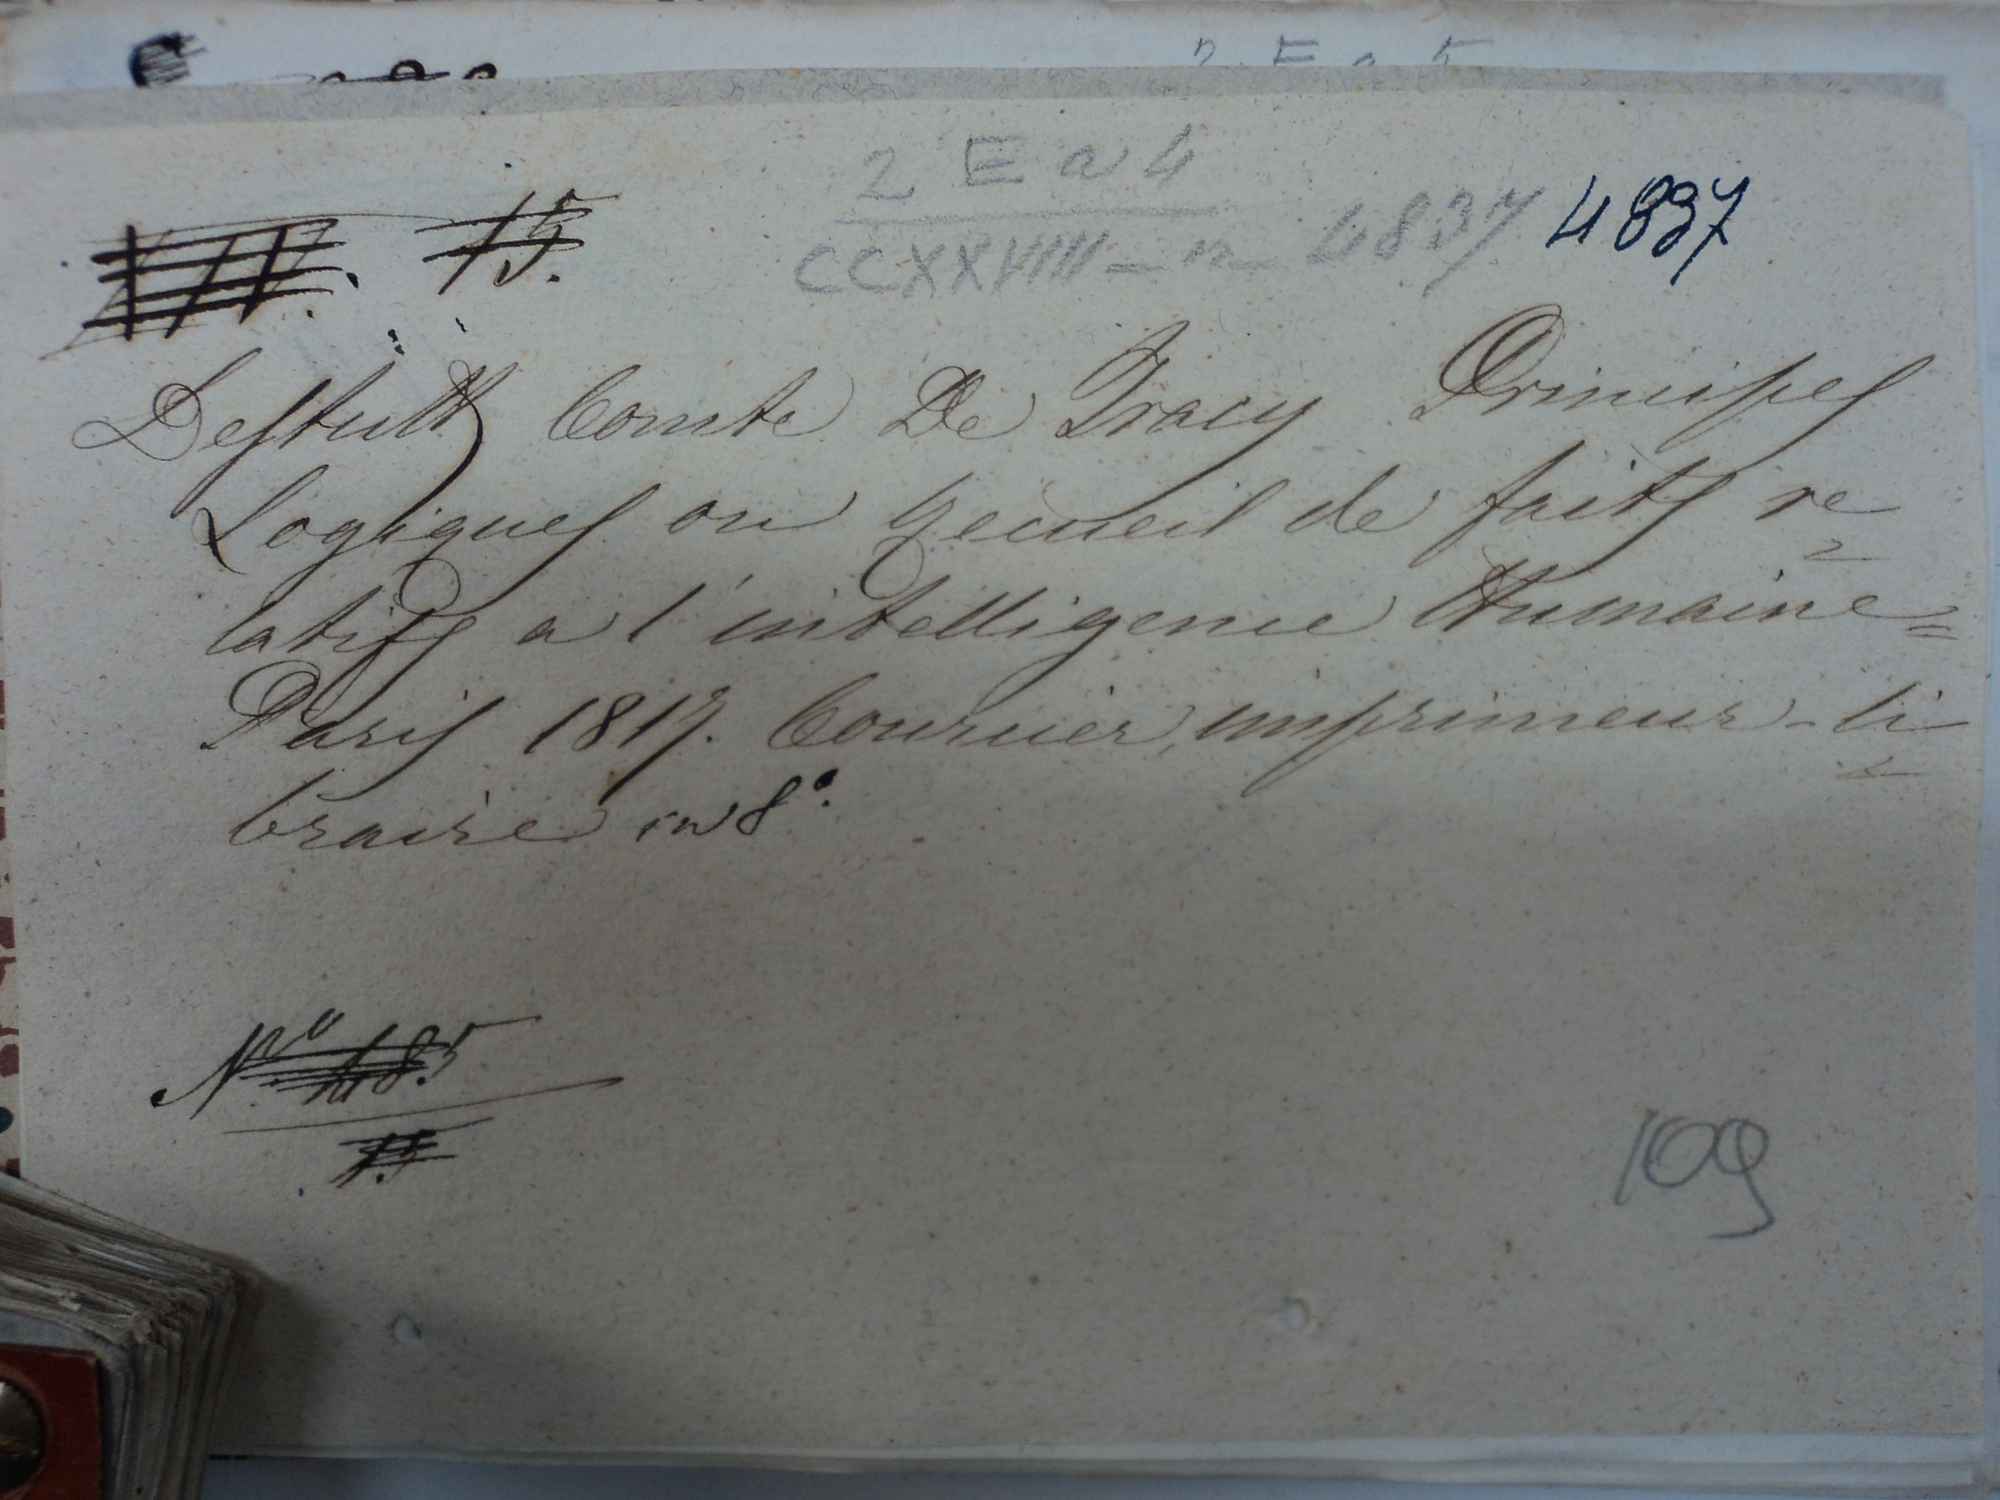 2 E a 4
III. 15.
CCXXVIIII - n 4837 4837
Destutt Comte De Tracy Principes
Logiques ou Recueil de faits re
latifs a l'intelligence Humaine=
Paris 1817. Courcier, imprimeur-li
braire in 8°.
N° 185
15
109